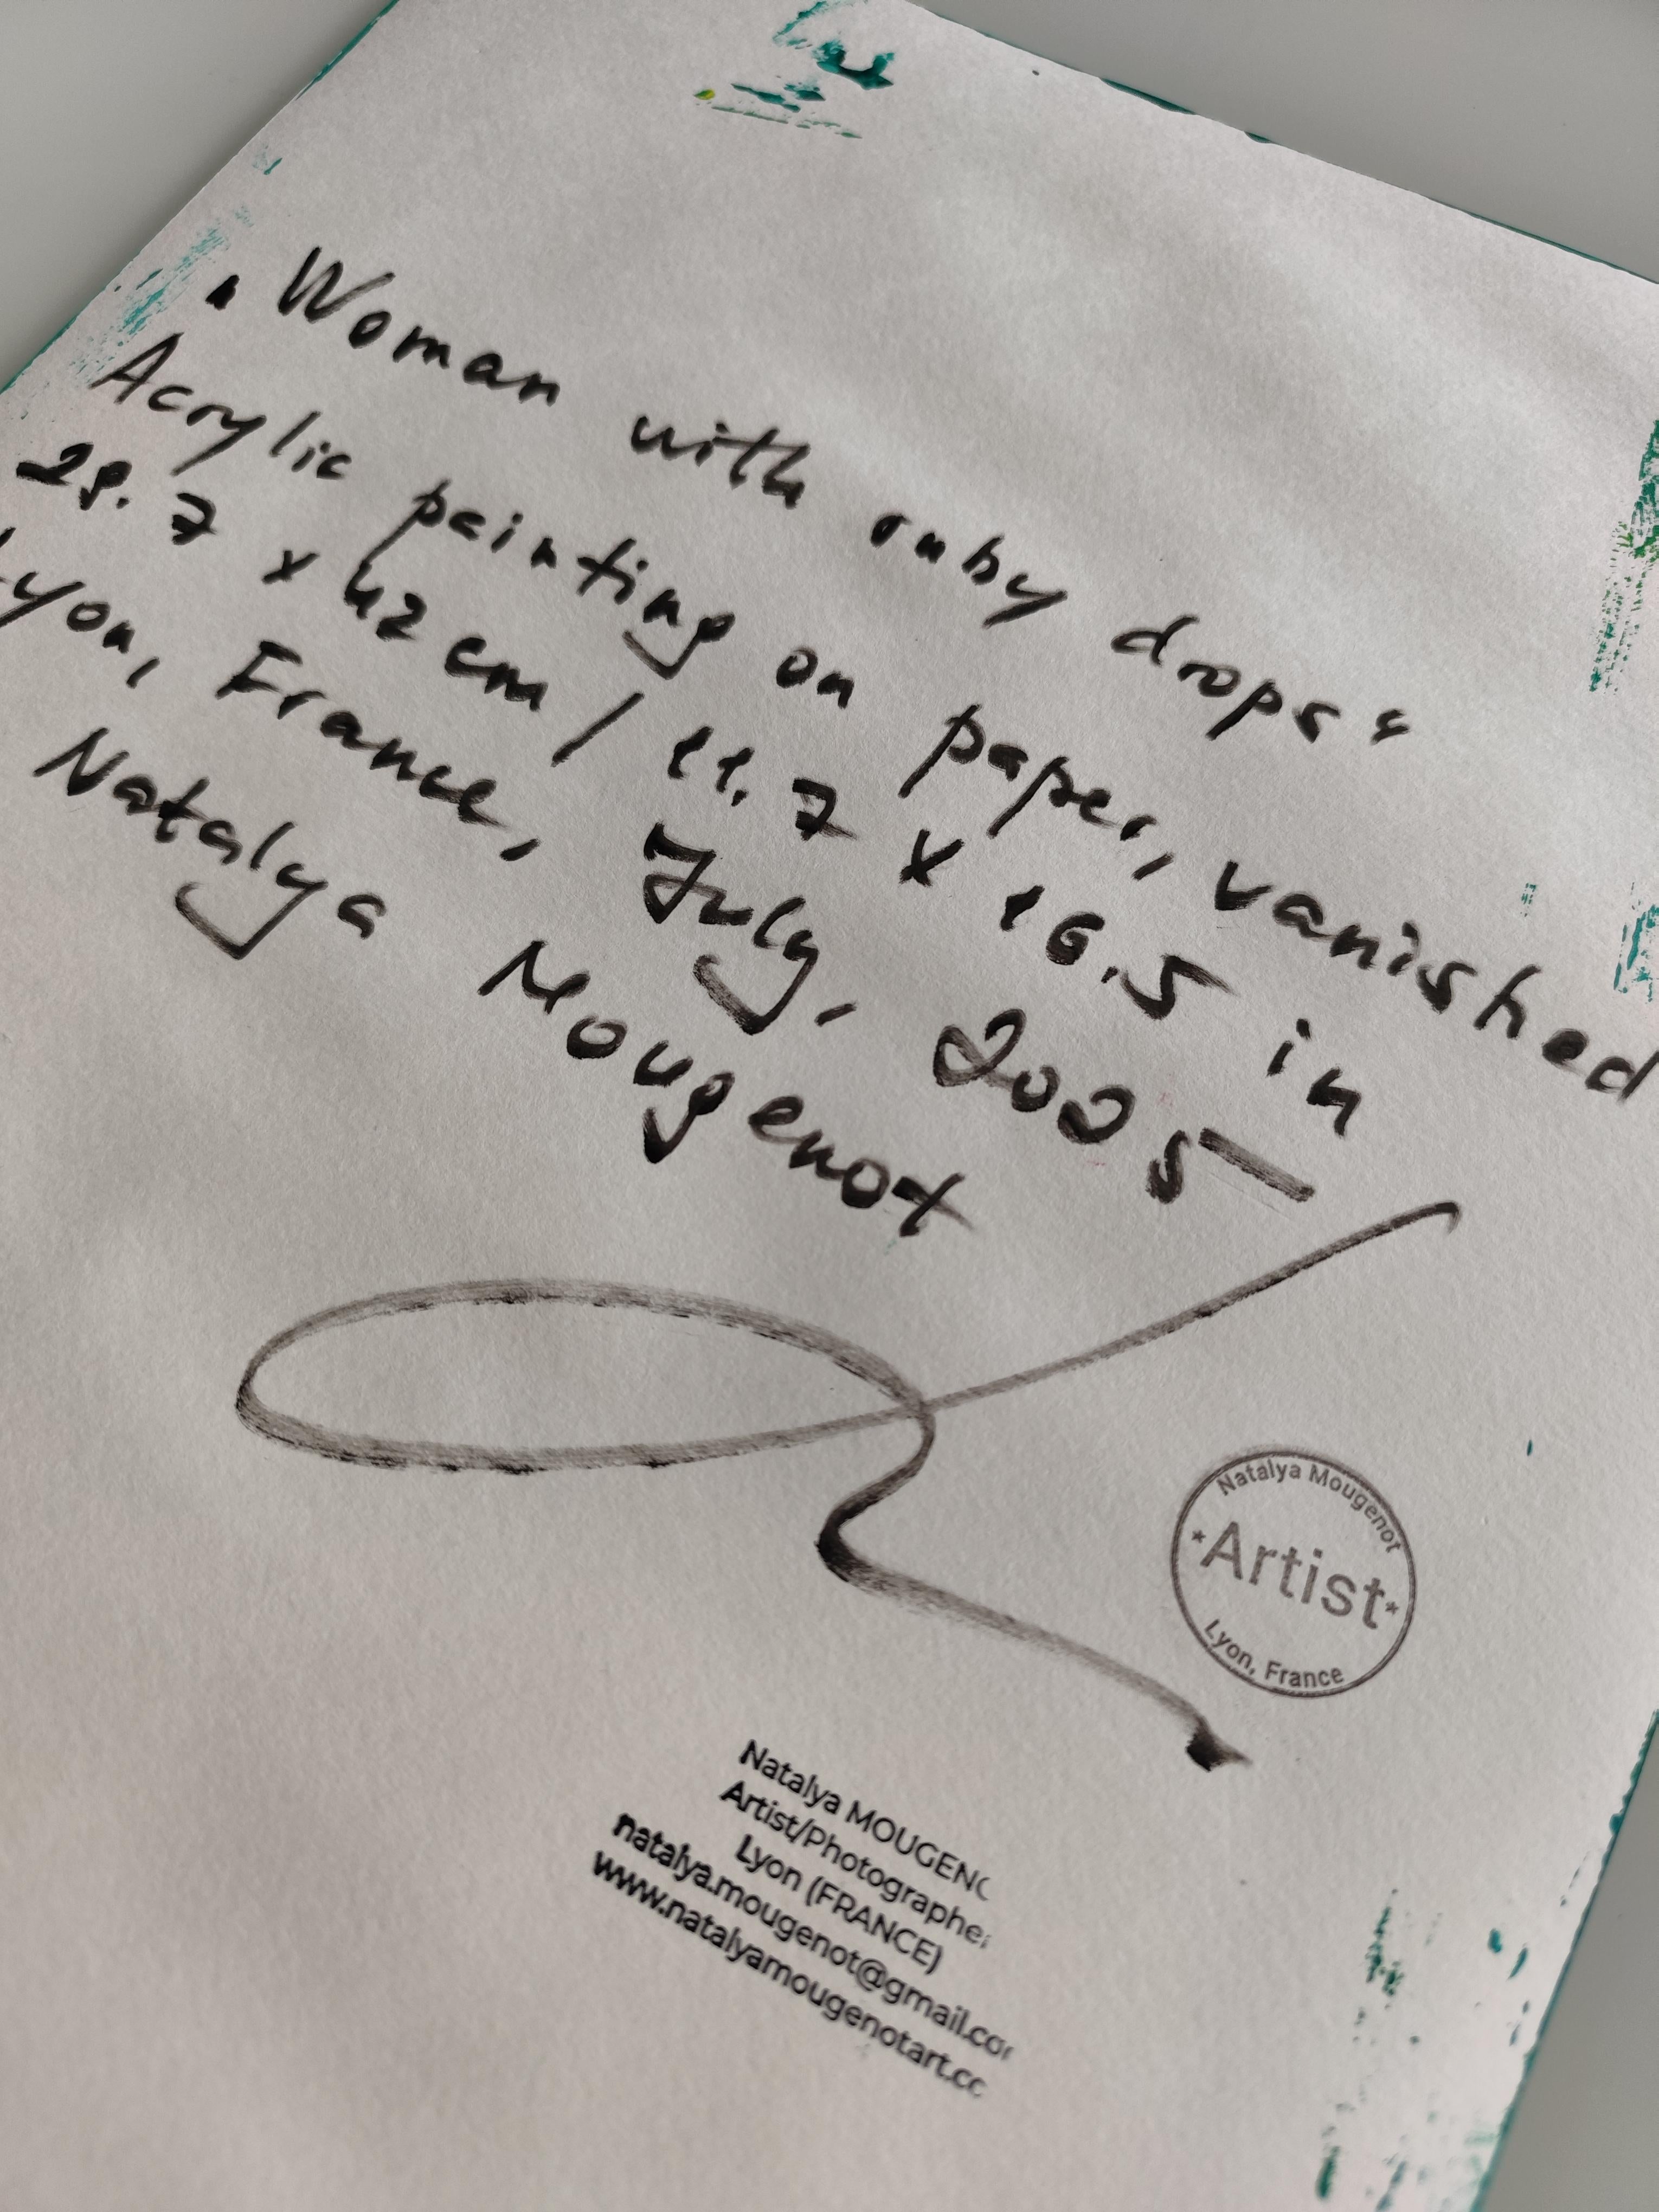 "Woman with ruby drops"
Acrylic painting on paper, vanished
29.7 x 42 cm / 11.7 x 16.5 in
Lyon, France, July, 2025
Natalya Mougenot
Natalya Mougenot
*Artist*
Lyon, France
Natalya MOUGENO
Artist/Photographer
Lyon (FRANCE)
natalya.mougenot@gmail.com
www.natalyamougenotart.co